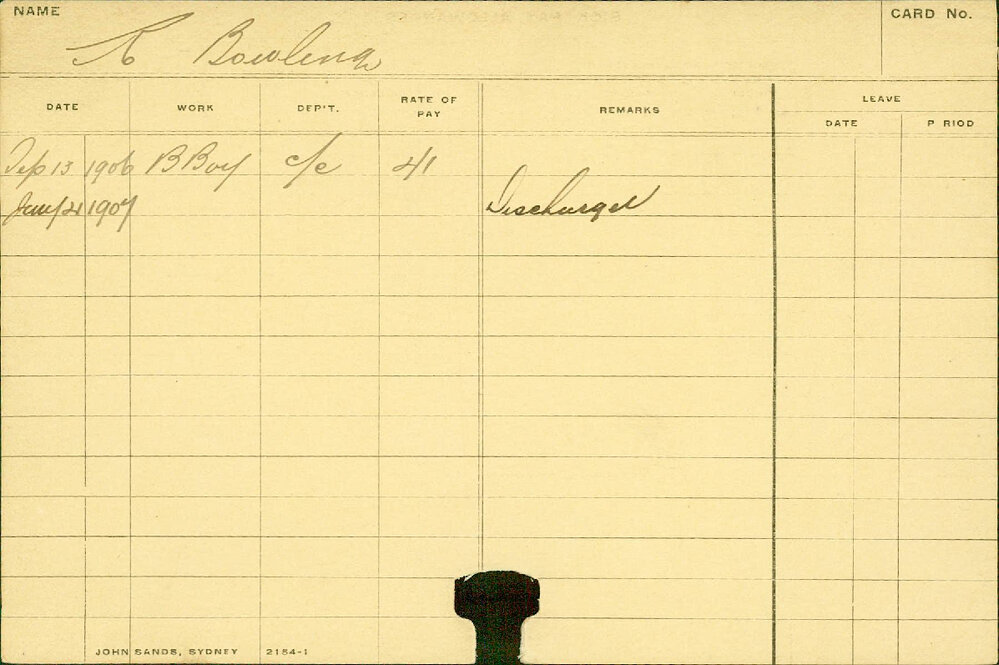 NAME
CARD No.
Bowling
DATE WORK DEP'T. RATE OF PAY REMARKS LEAVE
DATE P RIOD
Sep 13 1906 B Boy c/e 4/1
Jany 21 1907 Discharged
JOHN SANDS, SYDNEY 2184-1